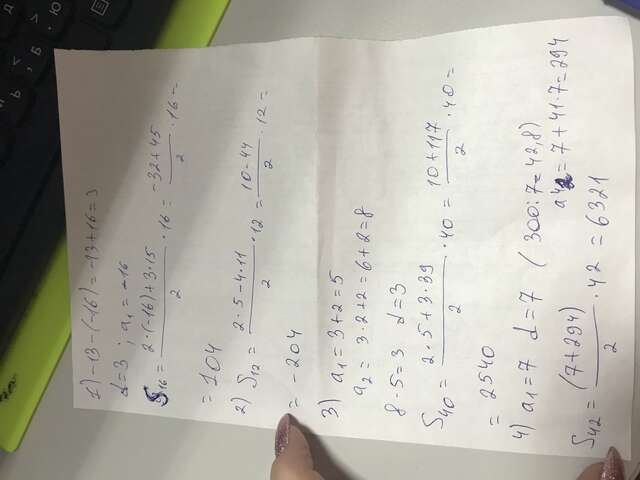 1) -13-(-16)=-13+16=3
d=3 ; a₁=-16
S₁₆ = (2·(-16)+3·15)/2 · 16 = (-32+45)/2 · 16 =
= 104
2) S₁₂ = (2·5-4·11)/2 · 12 = (10-44)/2 · 12 =
= -204
3) a₁ = 3+2=5
a₂ = 3·2+2=6+2=8
8-5=3 d=3
S₄₀ = (2·5+3·39)/2 · 40 = (10+117)/2 · 40 =
= 2540
4) a₁=7 d=7 (300:7=42,8)
a₄₂=7+41·7=294
S₄₂ = (7+294)/2 · 42 = 6321